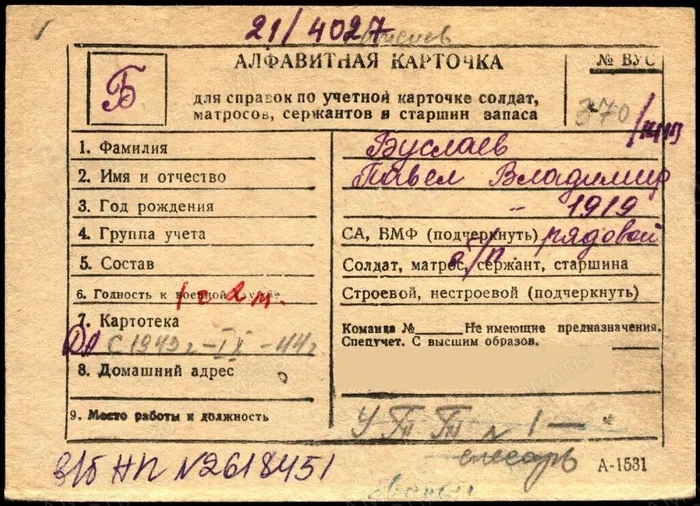 21/4027
АЛФАВИТНАЯ КАРТОЧКА
№ ВУС
Б
для справок по учетной карточке солдат,
матросов, сержантов и старшин запаса
370
1. Фамилия Буслаев
2. Имя и отчество Павел Владимир
3. Год рождения - 1919
4. Группа учета СА, ВМФ (подчеркнуть) рядовой
5. Состав Солдат, матрос, сержант, старшина
6. Годность к военной службе Строевой, нестроевой (подчеркнуть)
7. Картотека Команда № Не имеющие предназначения.
Спецучет. С высшим образов.
8. Домашний адрес
9. Место работы и должность
слесарь
в/б НП №2618451
А-1531